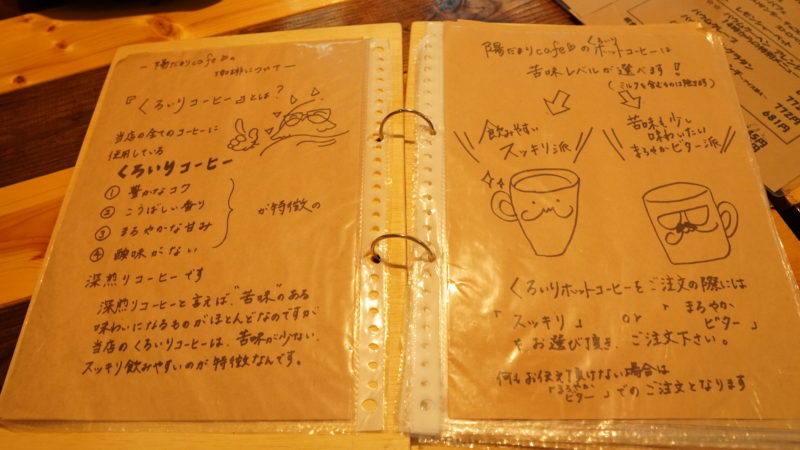 －陽だまりcafeの
珈琲について－
『くろいりコーヒー』とは？
当店の全てのコーヒーに
使用している
くろいりコーヒー
① 豊かなコク
② こうばしい香り
③ まろやかな甘み
④ 酸味がない
が特徴の
深煎りコーヒーです
深煎りコーヒーと言えば、"苦味"のある
味わいになるものがほとんどなのですが
当店のくろいりコーヒーは、苦味が少ない、
スッキリ飲みやすいのが特徴なんです。
陽だまりcafeのくろいりホットコーヒーは
苦味レベルが選べます！
（ミルクを含むものは除きます）
飲みやすい
スッキリ派
苦味も少し
味わいたい
まろやかビター派
くろいりホットコーヒーをご注文の際には
「スッキリ」 or 「まろやか
ビター」
をお選び頂き、ご注文下さい。
何もお伝え頂けない場合は
「まろやか
ビター」でのご注文となります
グラタン
772円
681円